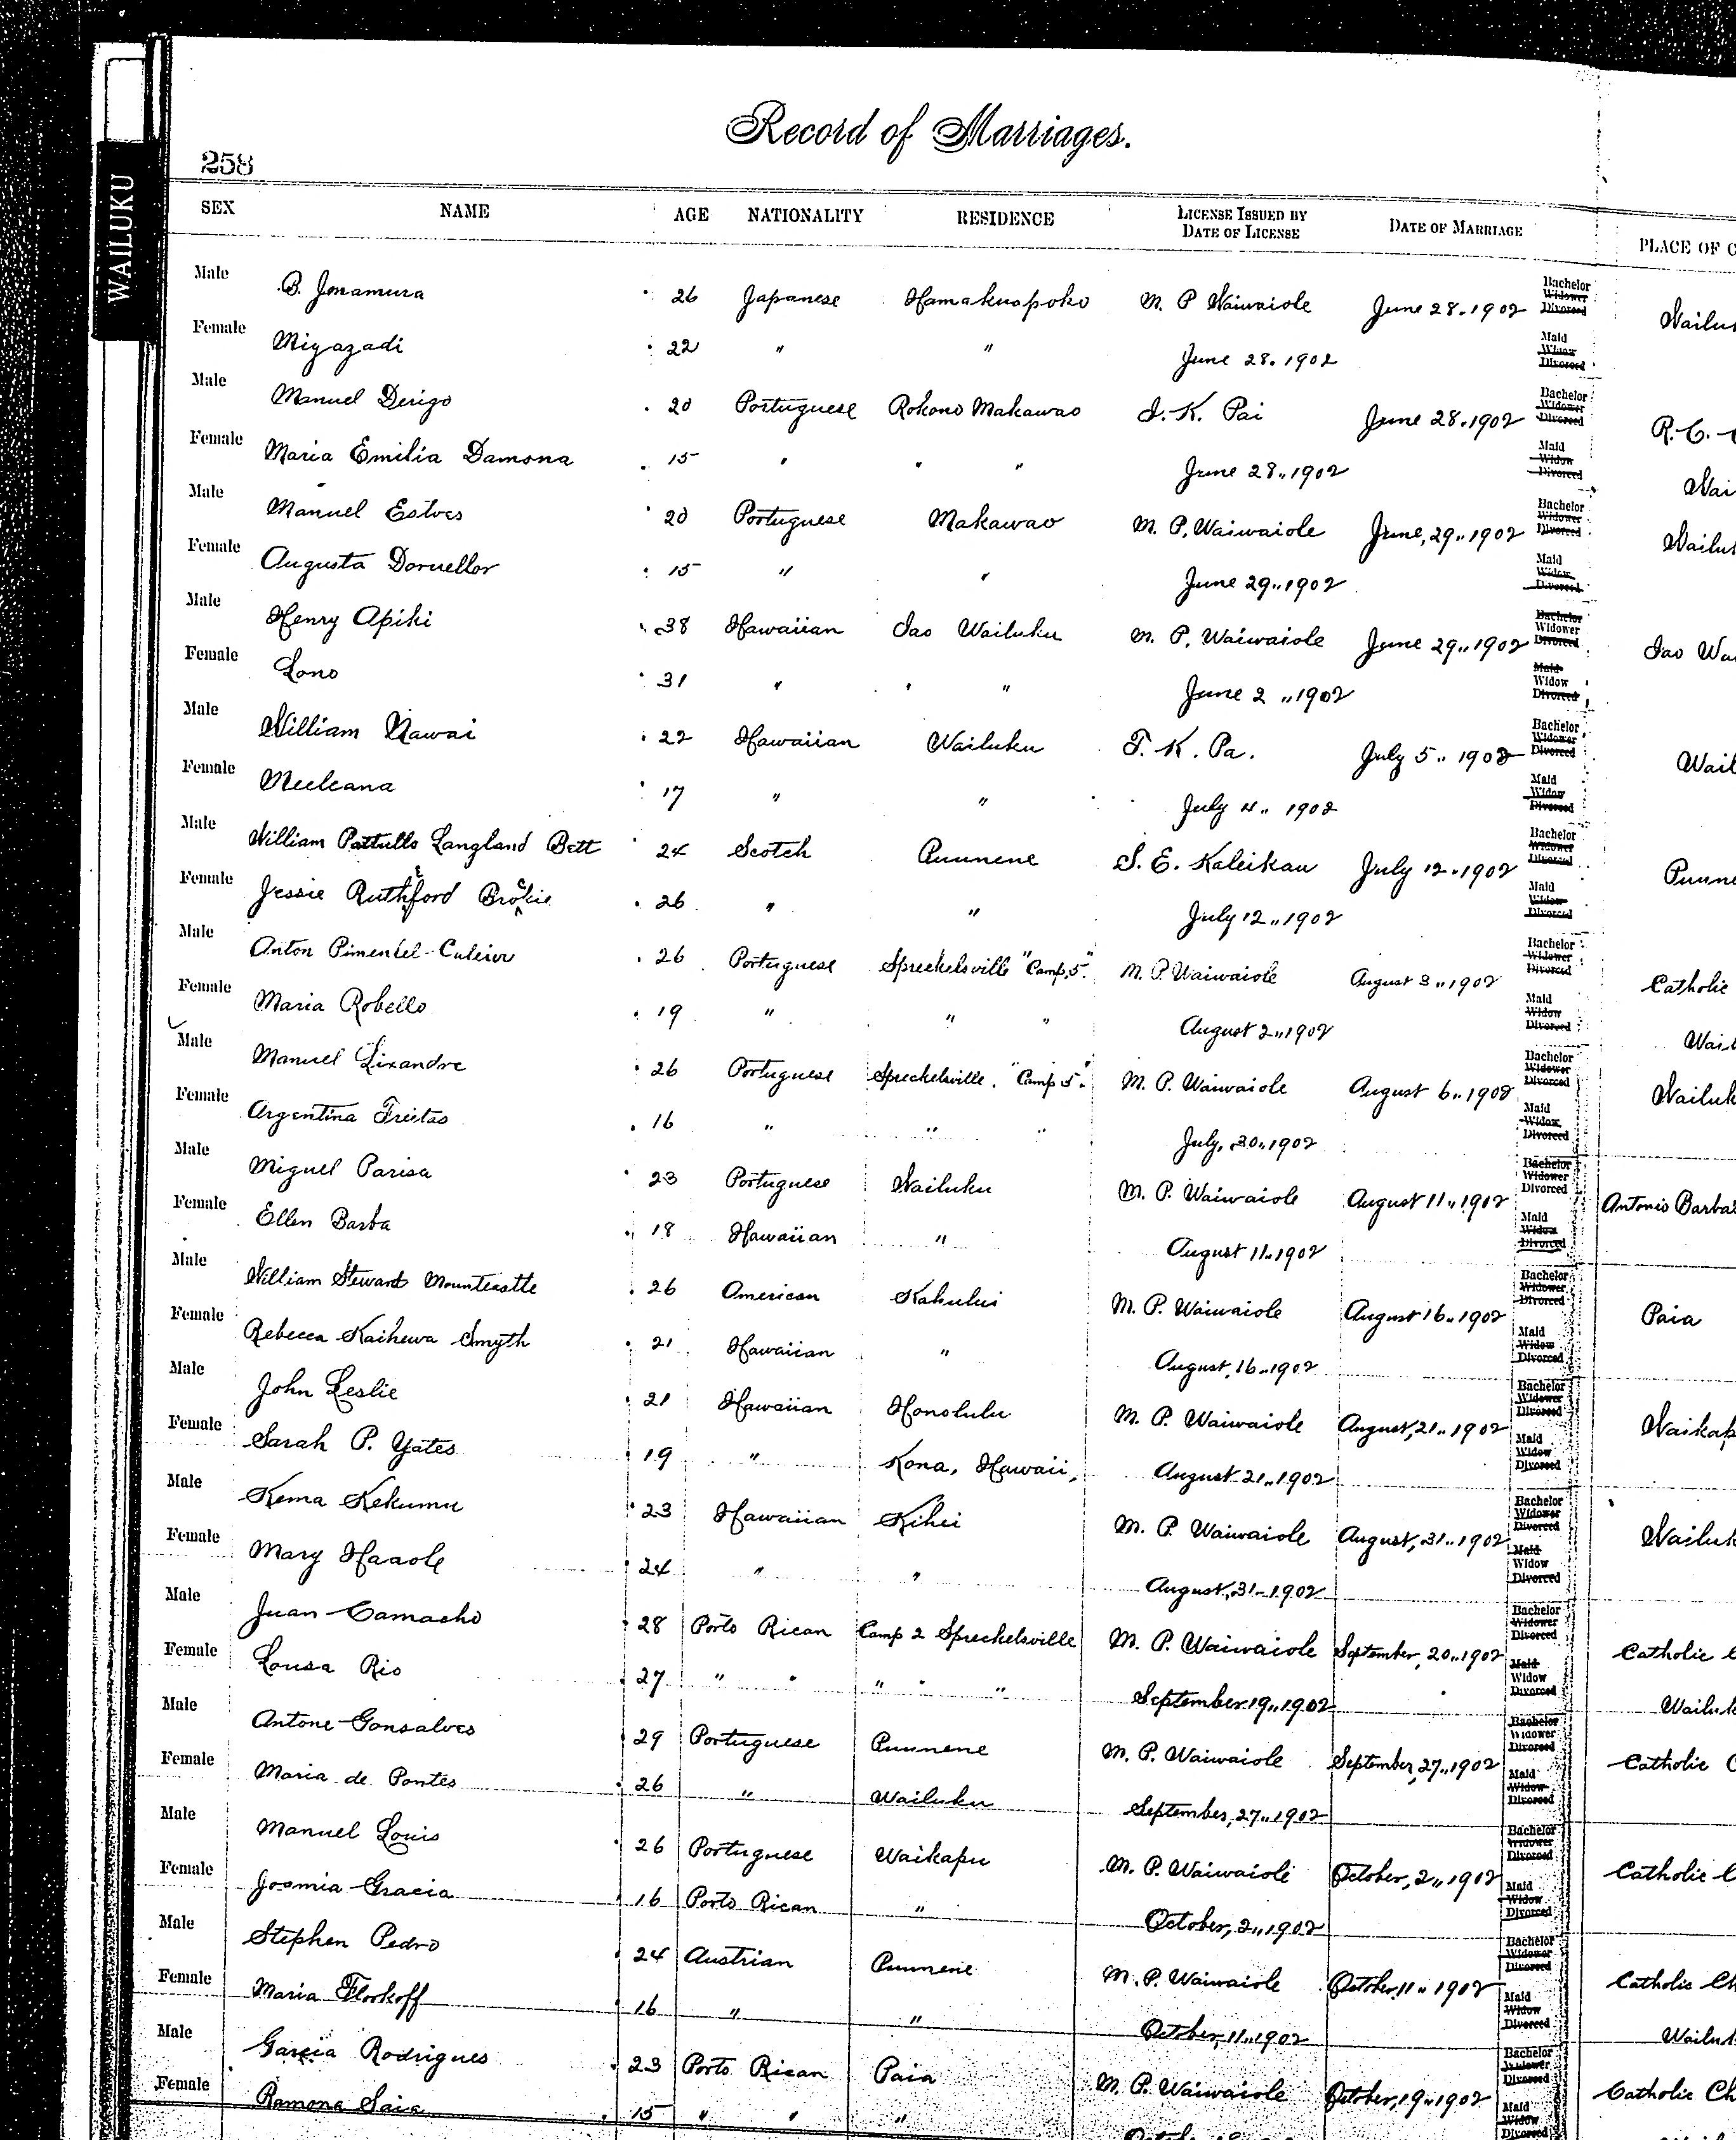 WAILUKU
Record of Marriages.
258
SEX NAME AGE NATIONALITY RESIDENCE LICENSE ISSUED BY DATE OF LICENSE DATE OF MARRIAGE PLACE OF C
Male B. Jmamura 26 Japanese Hamakuapoko M. P Waiwaiole June 28. 1902 Bachelor Widower Divorced Wailu
Female Miyazadi 22 " " June 28. 1902 Maid Widow Divorced
Male Manuel Derigo 20 Portuguese Rokono Makawao I. K. Pai June 28. 1902 Bachelor Widower Divorced R. C.
Female Maria Emilia Damona 15 " " " June 28.. 1902 Maid Widow Divorced Wai
Male Manuel Estves 20 Portuguese Makawao M. P. Waiwaiole June, 29.. 1902 Bachelor Widower Divorced Wailuk
Female Augusta Doruellor 15 " " June 29.. 1902 Maid Widow Divorced
Male Henry Apiki 38 Hawaiian Iao Wailuku M. P. Waiwaiole June 29.. 1902 Bachelor Widower Divorced Iao Wa
Female Lono 31 " " " June 2 .. 1902 Maid Widow Divorced
Male William Nawai 22 Hawaiian Wailuku T. K. Pa. July 5.. 1902 Bachelor Widower Divorced Wail
Female Meeleana 17 " " July 4.. 1902 Maid Widow Divorced
Male William Pattullo Langland Bett 24 Scotch Puunene S. E. Kaleikau July 12.. 1902 Bachelor Widower Divorced Puune
Female Jessie Ruthford Brockie 26 " " July 12.. 1902 Maid Widow Divorced
Male Anton Pimentel 26 Portuguese Spreckelsville "Camp, 5." M. P. Waiwaiole August 3.. 1902 Bachelor Widower Divorced Catholic
Female Maria Robello 19 " " " August 2.. 1902 Maid Widow Divorced Wail
Male Manuel Lixandre 26 Portuguese Spreckelsville. "Camp 5." M. P. Waiwaiole August 6.. 1902 Bachelor Widower Divorced Wailuk
Female Argentina Freitas 16 " " " July, 30.. 1902 Maid Widow Divorced
Male Miguel Parisa 23 Portuguese Wailuku M. P. Waiwaiole August 11.. 1902 Bachelor Widower Divorced Antonio Barba
Female Ellen Barba 18 Hawaiian " August 11.. 1902 Maid Widow Divorced
Male William Steward Mountcastle 26 American Kahului M. P. Waiwaiole August 16.. 1902 Bachelor Widower Divorced Paia
Female Rebecca Kaihewa Smyth 21 Hawaiian " August, 16.. 1902 Maid Widow Divorced
Male John Leslie 21 Hawaiian Honolulu M. P. Waiwaiole August, 21.. 1902 Bachelor Widower Divorced Waikap
Female Sarah P. Yates 19 " Kona, Hawaii, August 21.. 1902 Maid Widow Divorced
Male Kema Kekumu 23 Hawaiian Kihei M. P. Waiwaiole August, 31.. 1902 Bachelor Widower Divorced Wailuk
Female Mary Haaole 24 " " August, 31.. 1902 Maid Widow Divorced
Male Juan Camacho 28 Porto Rican Camp 2 Spreckelsville M. P. Waiwaiole September, 20.. 1902 Bachelor Widower Divorced Catholic C
Female Lousa Rio 27 " " " " " September 19.. 1902 Maid Widow Divorced Wailuk
Male Antone Gonsalves 29 Portuguese Puunene M. P. Waiwaiole September, 27.. 1902 Bachelor Widower Divorced Catholic C
Female Maria de Pontes 26 " Wailuku September, 27.. 1902 Maid Widow Divorced
Male Manuel Louis 26 Portuguese Waikapu M. P. Waiwaiole October, 2.. 1902 Bachelor Widower Divorced Catholic C
Female Josmia Gracia 16 Porto Rican " October, 2.. 1902 Maid Widow Divorced
Male Stephen Pedro 24 Austrian Puunene M. P. Waiwaiole October, 11.. 1902 Bachelor Widower Divorced Catholic Ch
Female Maria Florkoff 16 " " October, 11.. 1902 Maid Widow Divorced Wailu
Male Garcia Rodrigues 23 Porto Rican Paia M. P. Waiwaiole October, 19.. 1902 Bachelor Widower Divorced Catholic Ch
Female Ramona Saia 15 " " " Maid Widow Divorced